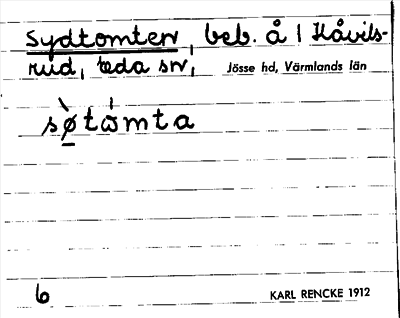 Sydtomten, beb. å 1 Håvils-
rud, Eda sn, Jösse hd, Värmlands län
sø̀tɷmta
6 KARL RENCKE 1912